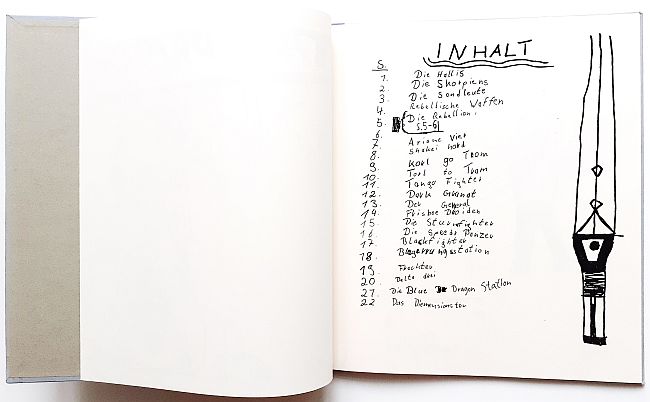 INHALT
S.
1. Die Hollis
2. Die Skorpiens
3. Die Sandleute
4. Rebellische Waffen
5. Die Rebellion:
6. S.5-6
7. Ariane Vier
8. Shakei hard
9. Karl go Trom
10. Torl to Tram
11. Tango Fighter
12. Dark Granat
13. Der General
14. Frisbee Droiden
15 Die Sturmfighter
16. Die Speeds Panzer
17. Blackfighter
18. Blagerungsstation
19 Frachter
20. Delta drei
21 Die Blue Dragon Station
22 Das Diemensionstor